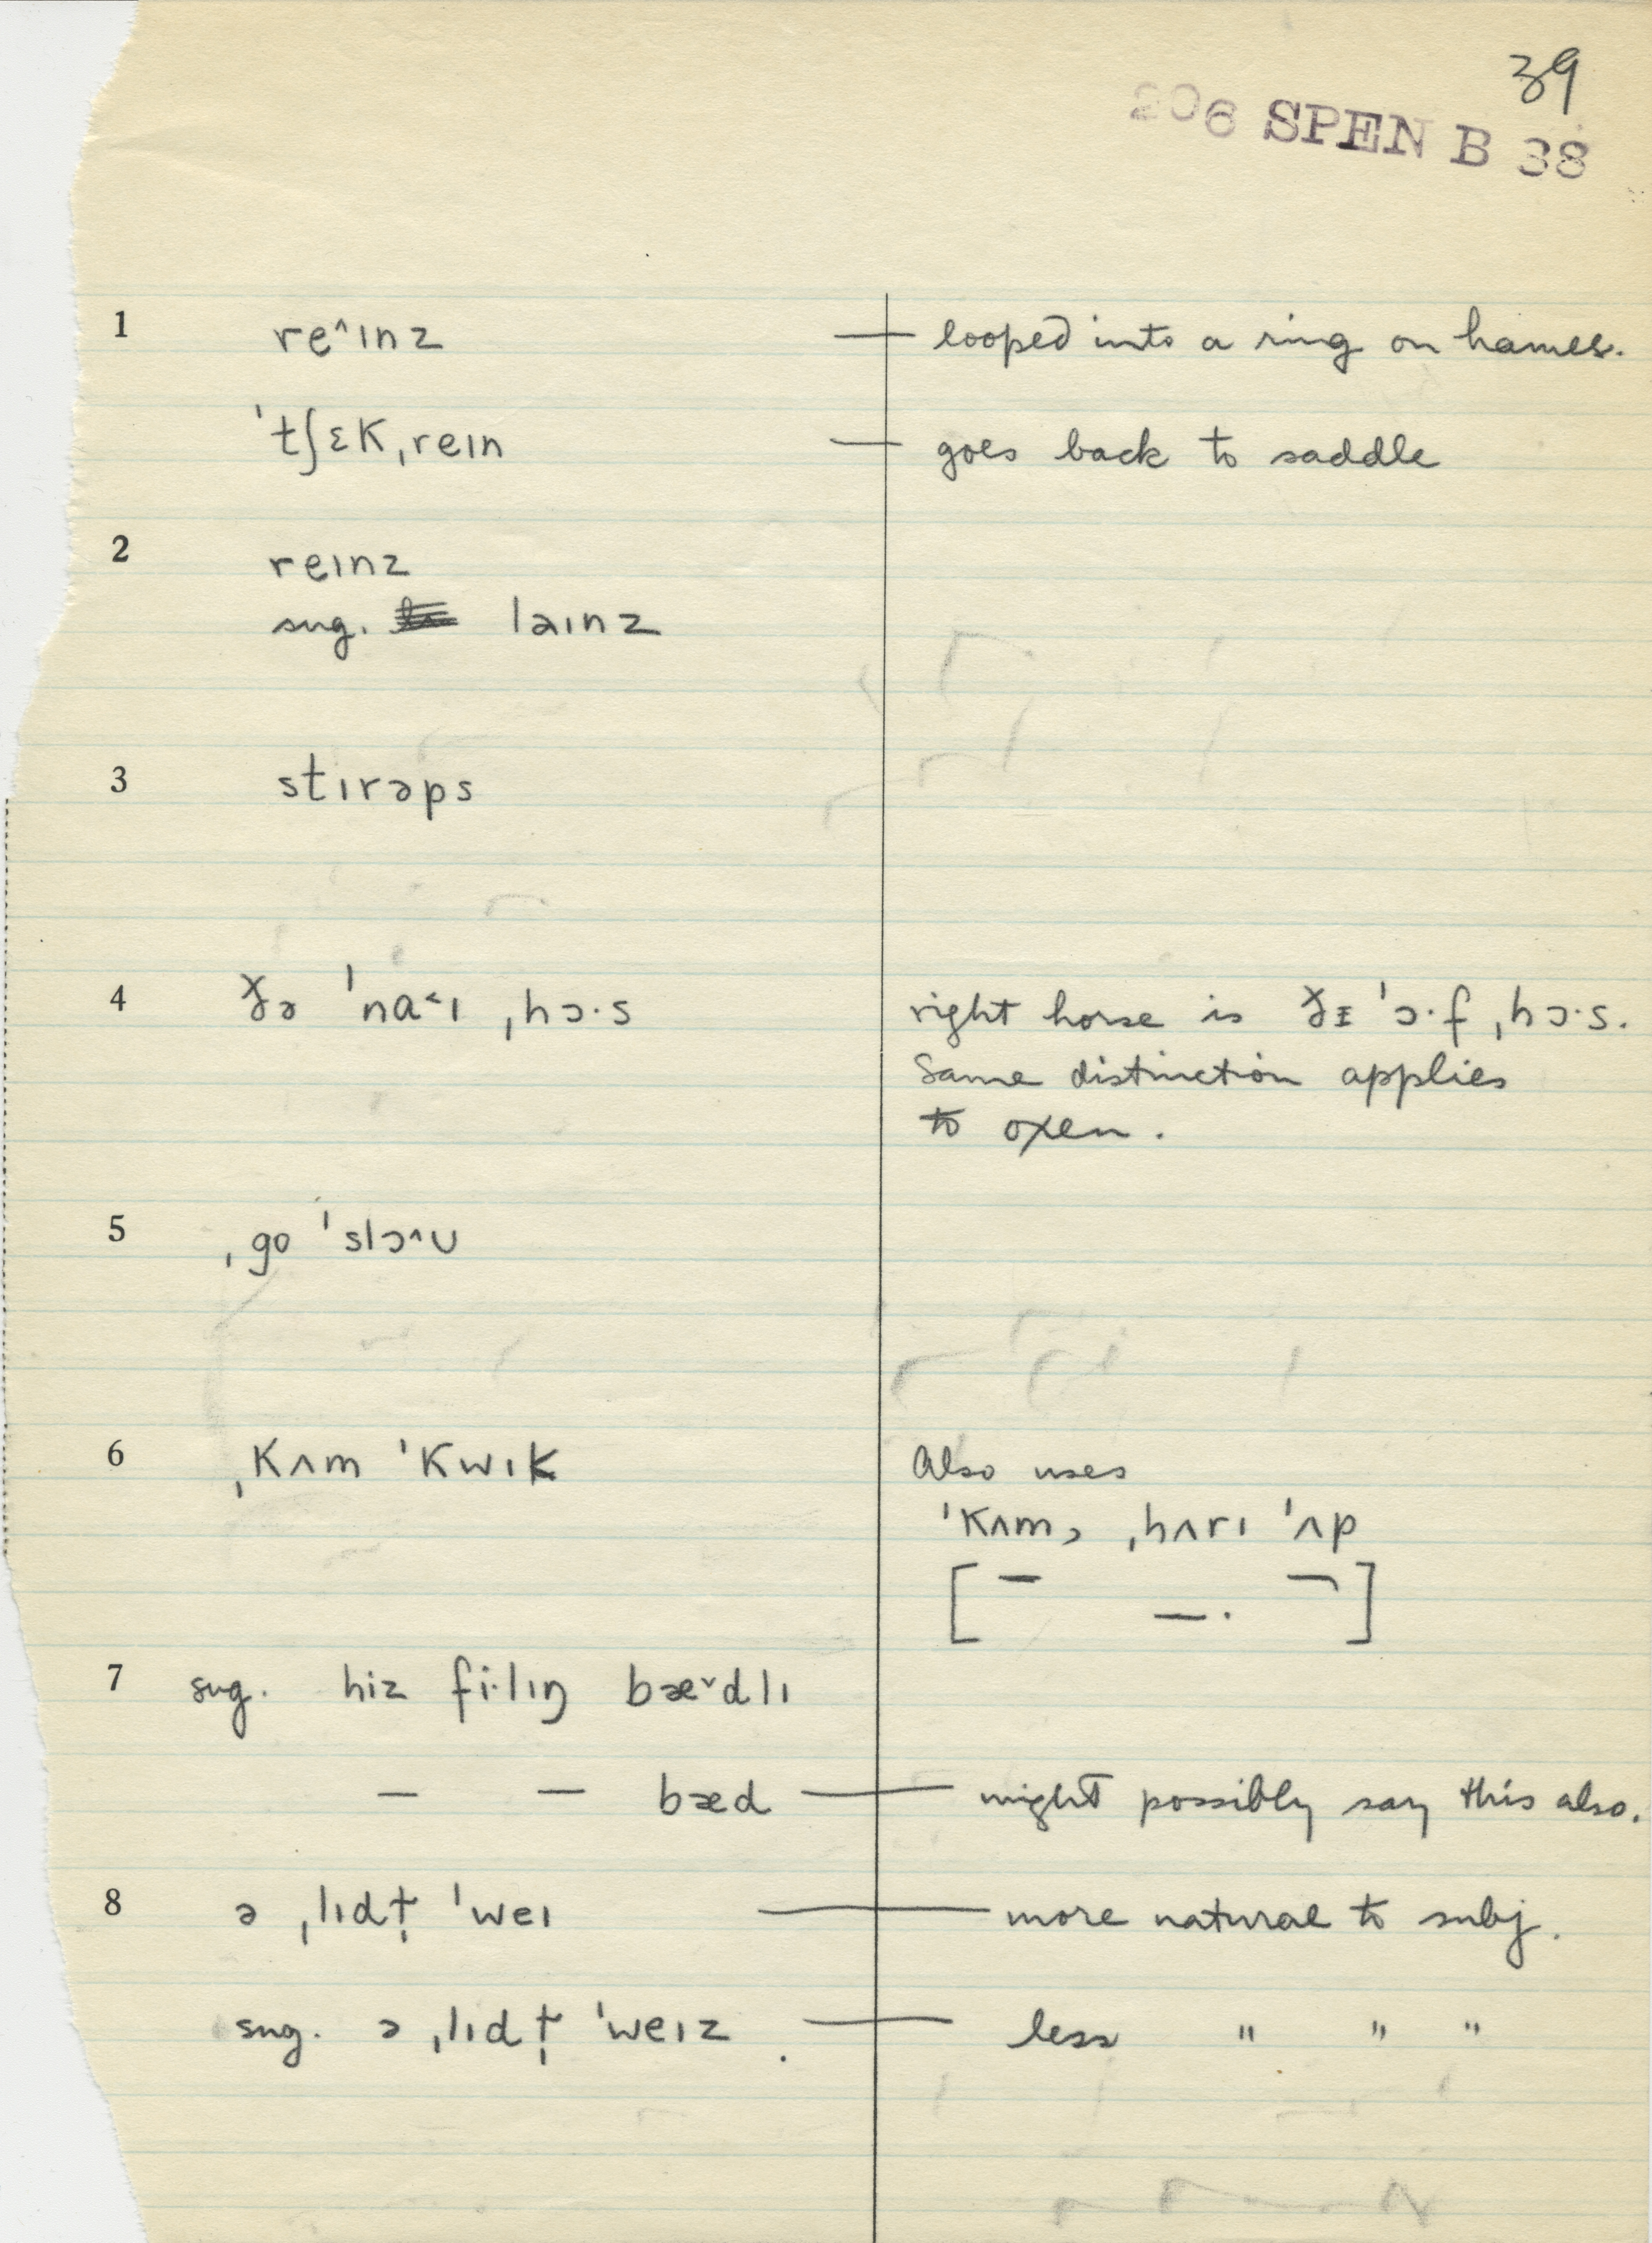 39
206 SPEN B 38
1 re^ɪnz — looped into a ring on hames.
ˈtʃɛkˌreɪn — goes back to saddle
2 reɪnz
sug. laɪnz
3 stɪrəps
4 ðə ˈna˂ɪ ˌhɔ·s right horse is ðɪ ˈɔ·f ˌhɔ·s.
Same distinction applies
to oxen.
5 ˌgo ˈslɔ^ʊ
6 ˌkʌm ˈkwɪk Also uses
ˈkʌm, ˌhʌrɪ ˈʌp
[ – –· ¬ ]
7 sug. hiz fi·lɪŋ bæ˅dlɪ
– – bæd — might possibly say this also.
8 ə ˌlɪdt̩ ˈweɪ — more natural to subj.
sug. ə ˌlɪdt̩ ˈweɪz. — less " " "